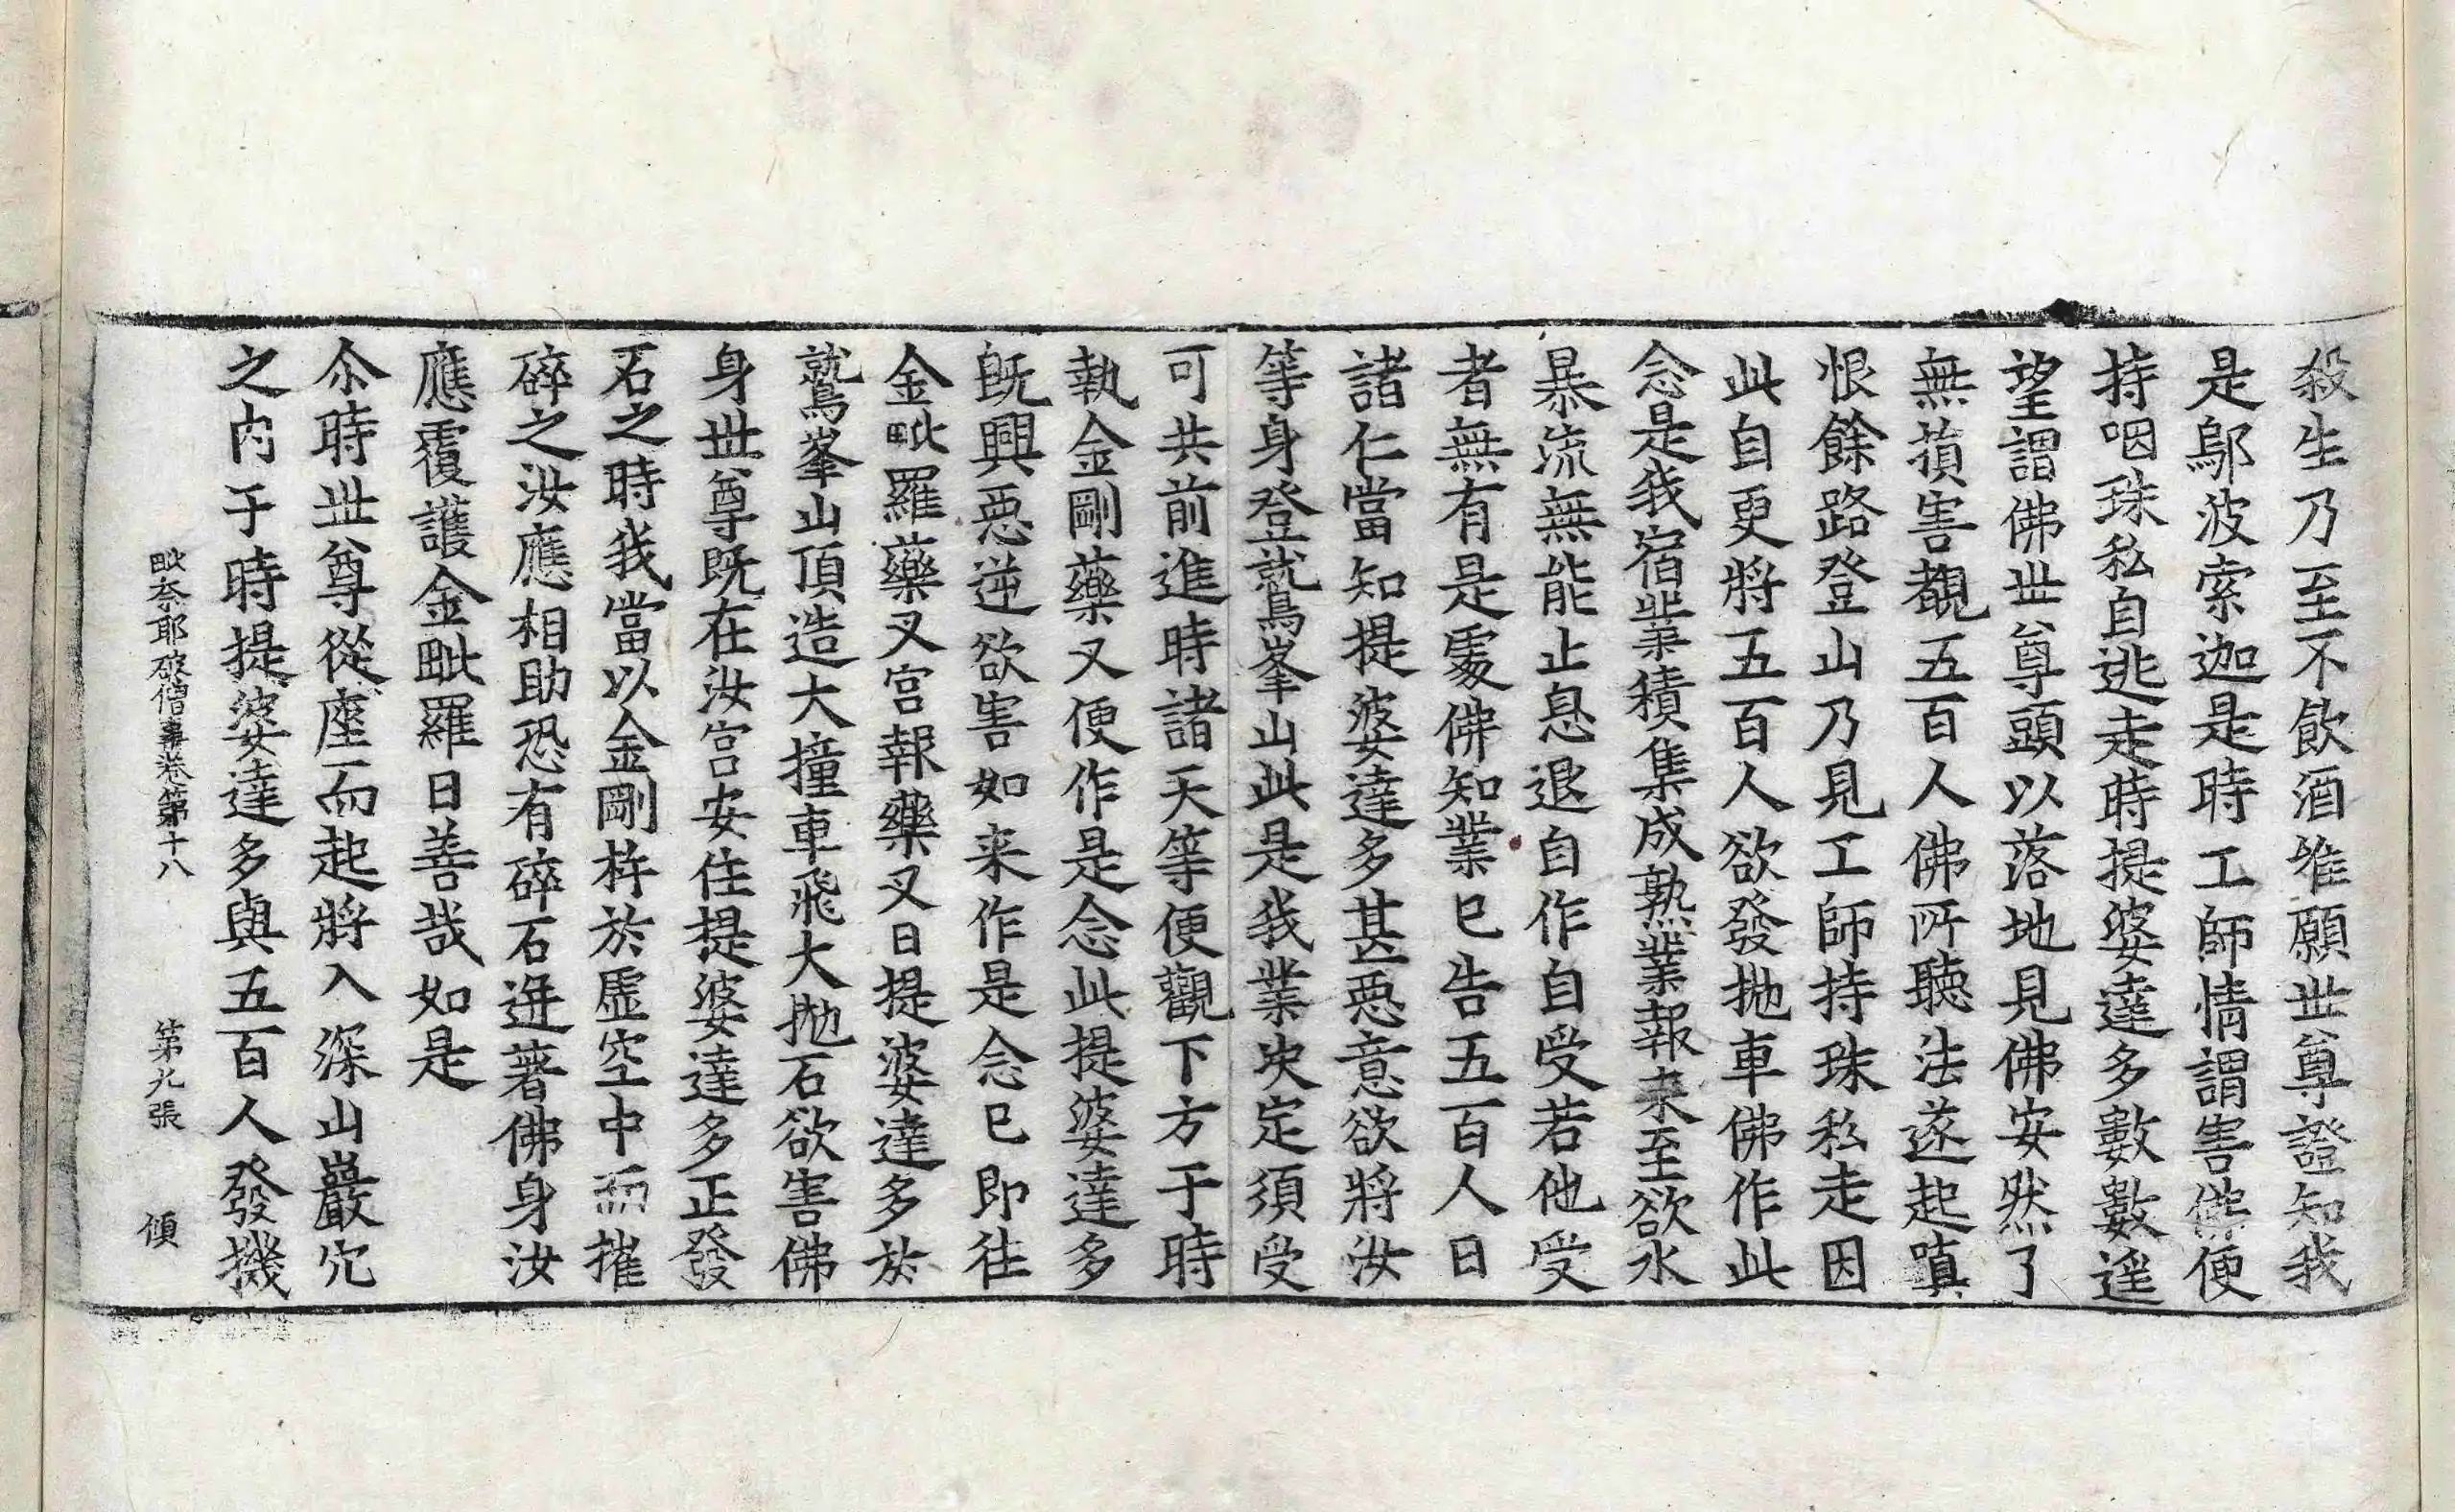 殺生乃至不飲酒唯願世尊證知我
是鄔波索迦是時工師情謂害佛便
持咽珠私自逃走時提婆達多數數遥
望謂佛世尊頭以落地見佛安然了
無損害覩五百人佛所聽法遂起瞋
恨餘路登山乃見工師持珠私走因
此自更將五百人欲發拋車佛作此
念是我宿業積集成熟業報来至欲水
暴流無能止息退自作自受若他受
者無有是處佛知業已告五百人曰
諸仁當知提婆達多甚惡意欲將汝
等身登就鷲峯山此是我業決定須受
可共前進時諸天等便觀下方于時
執金剛藥叉便作是念此提婆達多
旣興惡逆欲害如来作是念已即往
金毗羅藥叉宮報藥叉曰提婆達多於
鷲峯山頂造大撞車飛大拋石欲害佛
身世尊既在汝宮安住提婆達多正發
石之時我當以金剛杵於虛空中而摧
碎之汝應相助恐有碎石迸著佛身汝
應覆護金毗羅曰善哉如是
尒時世尊從座而起將入深山巖穴
之内于時提婆達多與五百人發機
毗奈耶破僧事卷第十八　第九張　傾